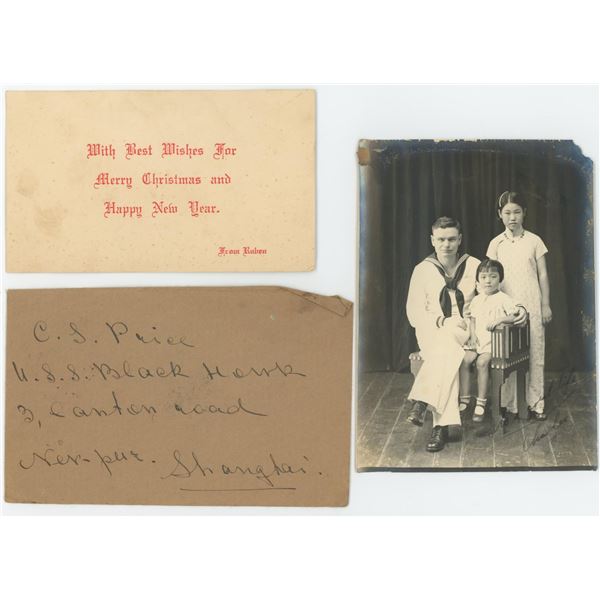 With Best Wishes For
Merry Christmas and
Happy New Year.
From Ruben
C. S. Price
U. S. S. Black Hawk
3, Canton road
Nex-pur. Shanghai.